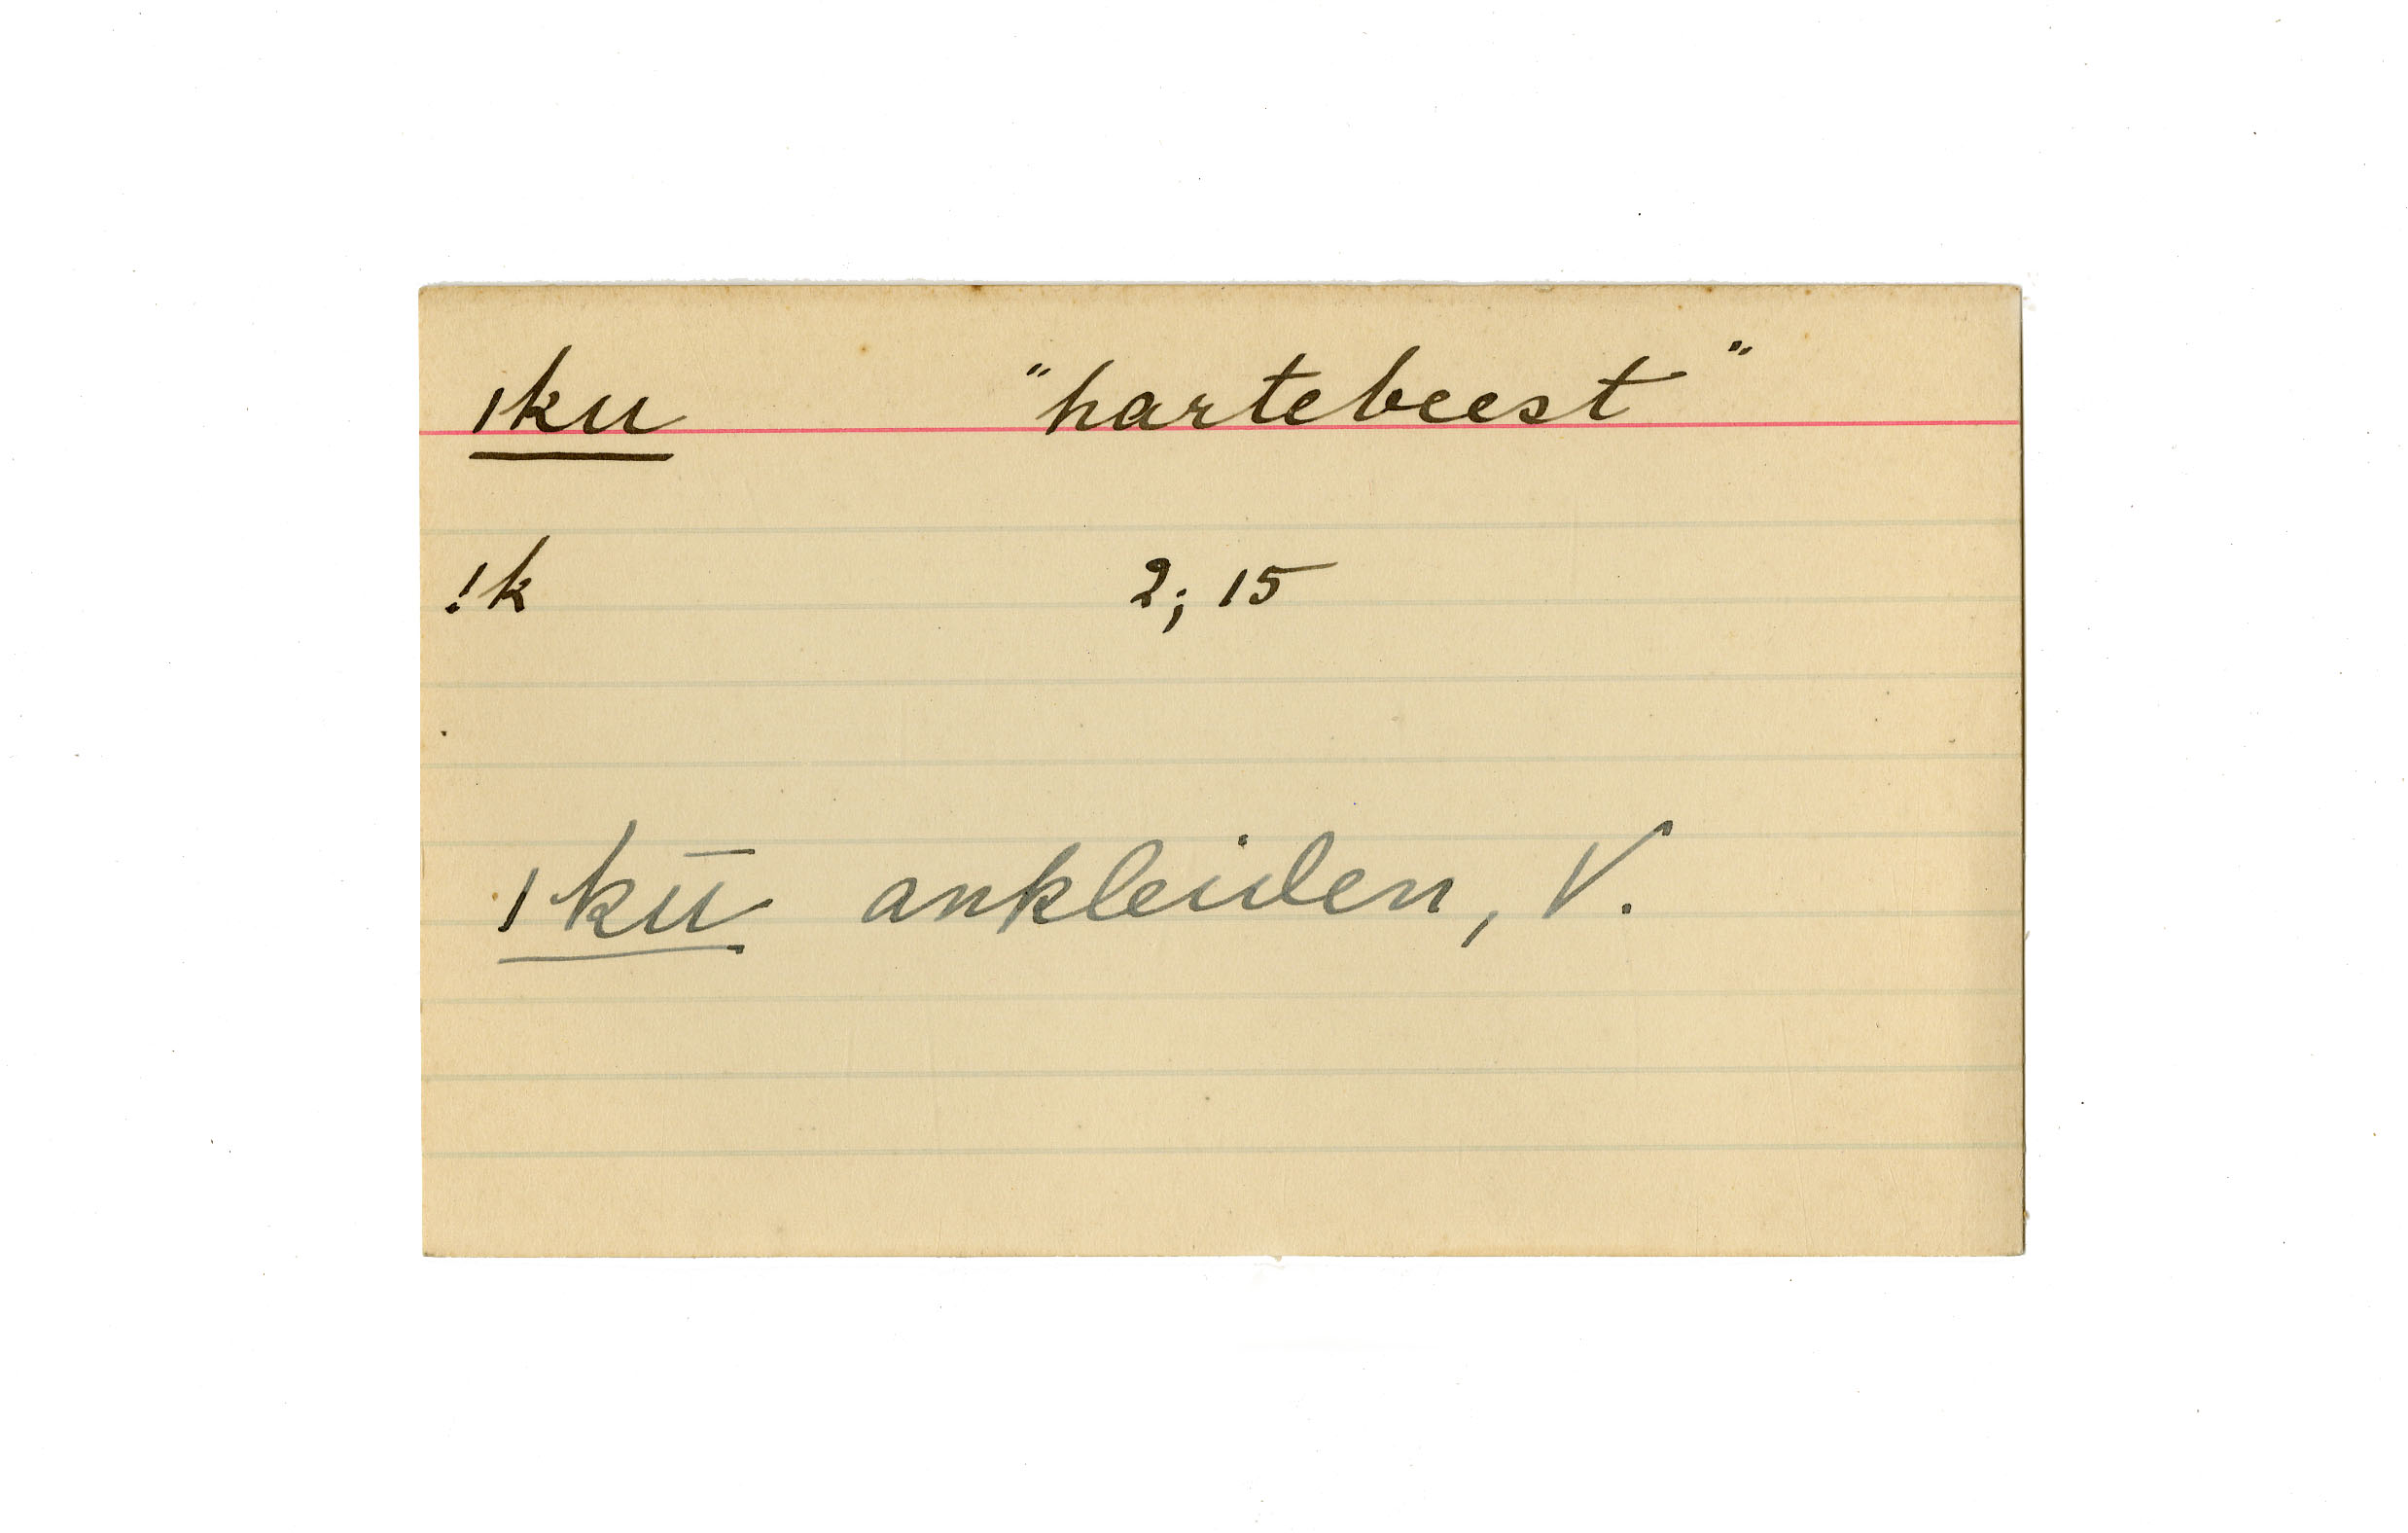 ǀku "hartebeest"
!k 2; 15
ǀkū ankleiden, V.